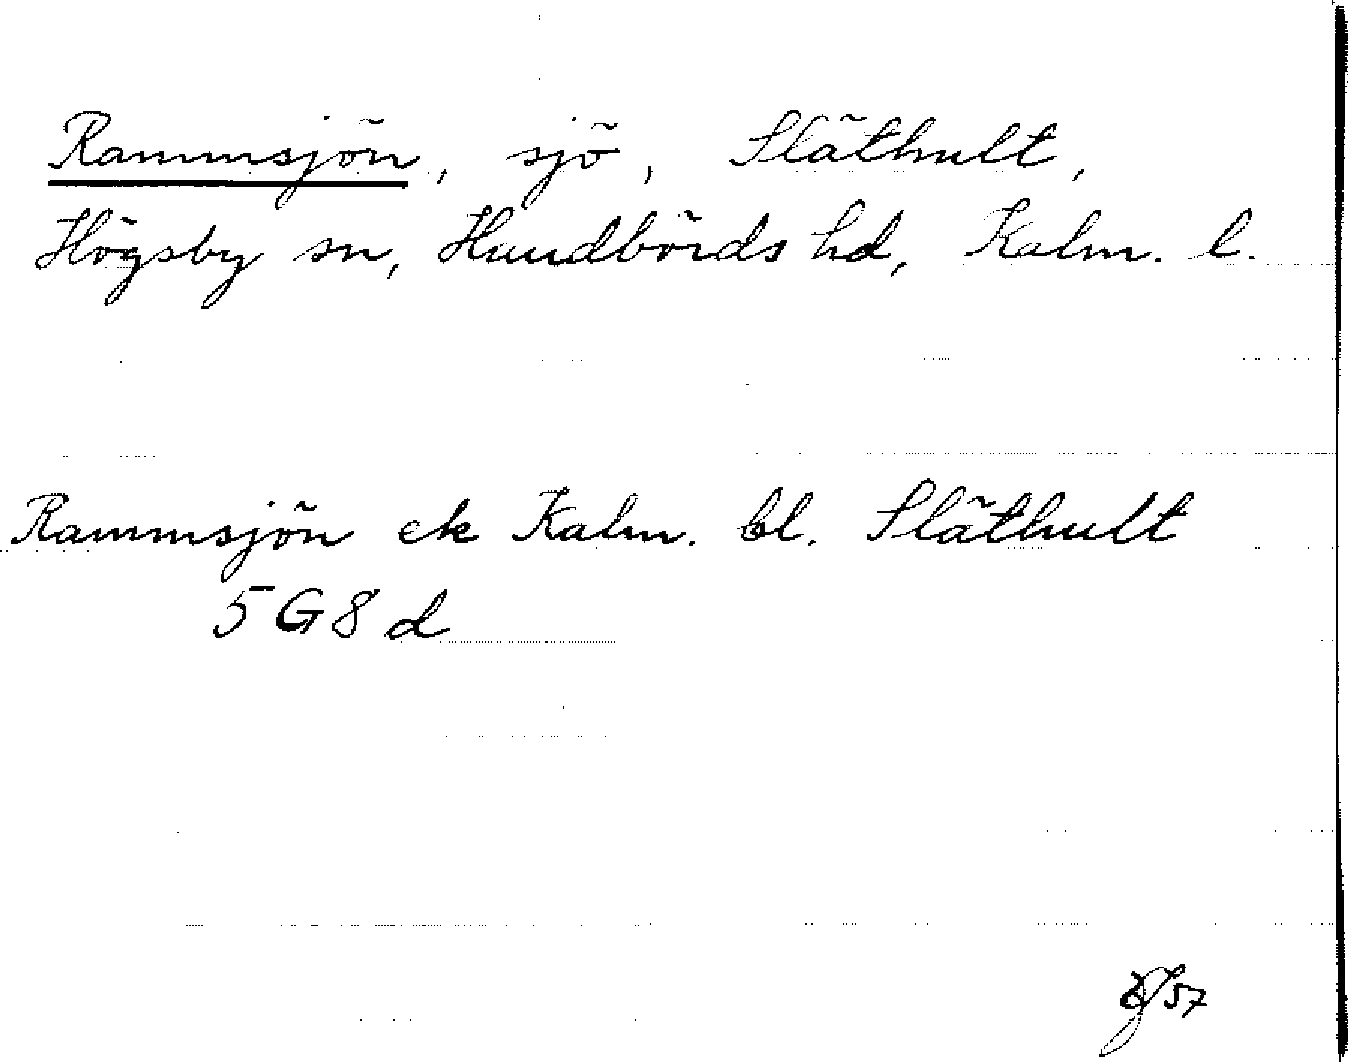 Rammsjön, sjö, Släthult,
Högsby sn, Handbörds hd, Kalm. l.
Rammsjön ek Kalm. bl. Släthult
5 G 8 d
57